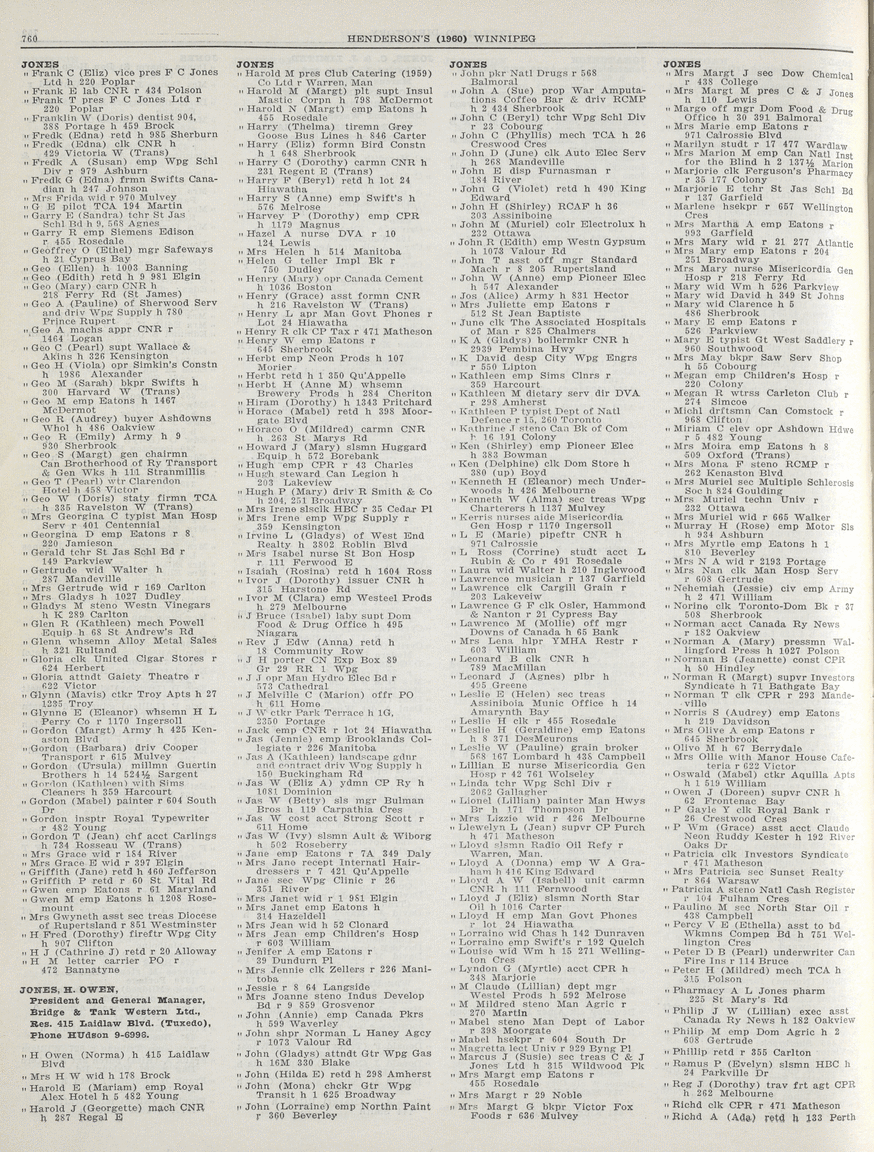 760
HENDERSON'S (1960) WINNIPEG
JONES
" Frank C (Eliz) vice pres F C Jones
Ltd h 220 Poplar
" Frank E lab CNR r 434 Polson
" Frank T pres F C Jones Ltd r
220 Poplar
" Franklin W (Doris) dentist 904,
388 Portage h 459 Brock
" Fredk (Edna) retd h 985 Sherburn
" Fredk (Edna) clk CNR h
429 Victoria W (Trans)
" Fredk A (Susan) emp Wpg Schl
Div r 979 Ashburn
" Fredk G (Edna) frmn Swifts Cana-
dian h 247 Johnson
" Mrs Frida wid r 970 Mulvey
" G E pilot TCA 194 Martin
" Garry E (Sandra) tchr St Jas
Schl Bd h 9, 568 Agnes
" Garry R emp Siemens Edison
r 455 Rosedale
" Geoffrey O (Ethel) mgr Safeways
h 21 Cyprus Bay
" Geo (Ellen) h 1003 Banning
" Geo (Edith) retd h 9 981 Elgin
" Geo (Mary) carp CNR h
218 Ferry Rd (St James)
" Geo A (Pauline) of Sherwood Serv
and driv Wpg Supply h 780
Prince Rupert
" Geo A machs appr CNR r
1464 Logan
" Geo C (Pearl) supt Wallace &
Akins h 326 Kensington
" Geo H (Viola) opr Simkin's Constn
h 1986 Alexander
" Geo M (Sarah) bkpr Swifts h
300 Harvard W (Trans)
" Geo M emp Eatons h 1467
McDermot
" Geo R (Audrey) buyer Ashdowns
Whol h 486 Oakview
" Geo R (Emily) Army h 9
930 Sherbrook
" Geo S (Margt) gen chairmn
Can Brotherhood of Ry Transport
& Gen Wks h 111 Stranmillis
" Geo T (Pearl) wtr Clarendon
Hotel h 458 Victor
" Geo W (Doris) staty firmn TCA
h 335 Ravelston W (Trans)
" Mrs Georgina C typist Man Hosp
Serv r 401 Centennial
" Georgina D emp Eatons r 8
220 Jamieson
" Gerald tchr St Jas Schl Bd r
149 Parkview
" Gertrude wid Walter h
287 Mandeville
" Mrs Gertrude wid r 169 Carlton
" Mrs Gladys h 1027 Dudley
" Gladys M steno Westn Vinegars
h K 289 Carlton
" Glen R (Kathleen) mech Powell
Equip h 68 St Andrew's Rd
" Glenn whsemn Alloy Metal Sales
h 321 Rutland
" Gloria clk United Cigar Stores r
624 Herbert
" Gloria attndt Gaiety Theatre r
622 Victor
" Glynn (Mavis) ctkr Troy Apts h 27
1235 Troy
" Glynne E (Eleanor) whsemn H L
Perry Co r 1170 Ingersoll
" Gordon (Margt) Army h 425 Ken-
aston Blvd
" Gordon (Barbara) driv Cooper
Transport r 615 Mulvey
" Gordon (Ursula) millmn Guertin
Brothers h 14 524½ Sargent
" Gordon (Kathleen) with Sims
Cleaners h 359 Harcourt
" Gordon (Mabel) painter r 604 South
Dr
" Gordon insptr Royal Typewriter
r 482 Young
" Gordon T (Jean) chf acct Carlings
h 734 Rosseau W (Trans)
" Mrs Grace wid r 184 River
" Mrs Grace E wid r 397 Elgin
" Griffith (Jane) retd h 460 Jefferson
" Griffith P retd r 60 St. Vital Rd
" Gwen emp Eatons r 61 Maryland
" Gwen M emp Eatons h 1208 Rose-
mount
" Mrs Gwyneth asst sec treas Diocese
of Rupertsland r 851 Westminster
" H Fred (Dorothy) fireftr Wpg City
h 907 Clifton
" H J (Cathrine J) retd r 20 Alloway
" H M letter carrier PO r
472 Bannatyne
JONES, H. OWEN,
President and General Manager,
Bridge & Tank Western Ltd.,
Res. 415 Laidlaw Blvd. (Tuxedo),
Phone HUdson 9-6996.
" H Owen (Norma) h 415 Laidlaw
Blvd
" Mrs H W wid h 178 Brock
" Harold E (Mariam) emp Royal
Alex Hotel h 5 482 Young
" Harold J (Georgette) mach CNR
h 287 Regal E
JONES
" Harold M pres Club Catering (1959)
Co Ltd r Warren, Man
" Harold M (Margt) plt supt Insul
Mastic Corpn h 798 McDermot
" Harold N (Margt) emp Eatons h
455 Rosedale
" Harry (Thelma) tiremn Grey
Goose Bus Lines h 846 Carter
" Harry (Eliz) formn Bird Constn
h 1 648 Sherbrook
" Harry C (Dorothy) carmn CNR h
231 Regent E (Trans)
" Harry F (Beryl) retd h lot 24
Hiawatha
" Harry S (Anne) emp Swift's h
576 Melrose
" Harvey P (Dorothy) emp CPR
h 1179 Magnus
" Hazel A nurse DVA r 10
124 Lewis
" Mrs Helen h 514 Manitoba
" Helen G teller Impl Bk r
750 Dudley
" Henry (Mary) opr Canada Cement
h 1036 Boston
" Henry (Grace) asst formn CNR
h 216 Ravelston W (Trans)
" Henry L apr Man Govt Phones r
Lot 24 Hiawatha
" Henry R clk CP Tax r 471 Matheson
" Henry W emp Eatons r
645 Sherbrook
" Herbt emp Neon Prods h 107
Morier
" Herbt retd h 1 350 Qu'Appelle
" Herbt H (Anne M) whsemn
Brewery Prods h 284 Cheriton
" Hiram (Dorothy) h 1343 Pritchard
" Horace (Mabel) retd h 398 Moor-
gate Blvd
" Horace O (Mildred) carmn CNR
h 263 St Marys Rd
" Howard J (Mary) slsmn Huggard
Equip h 572 Borebank
" Hugh emp CPR r 43 Charles
" Hugh steward Can Legion h
203 Lakeview
" Hugh P (Mary) driv R Smith & Co
h 204, 251 Broadway
" Mrs Irene slsclk HBC r 35 Cedar Pl
" Mrs Irene emp Wpg Supply r
359 Kensington
" Irvine L (Gladys) of West End
Realty h 3802 Roblin Blvd
" Mrs Isabel nurse St Bon Hosp
r 111 Ferwood E
" Isaiah (Rosina) retd h 1604 Ross
" Ivor J (Dorothy) issuer CNR h
315 Harstone Rd
" Ivor M (Clara) emp Westeel Prods
h 279 Melbourne
" J Bruce (Isabel) laby supt Dom
Food & Drug Office h 495
Niagara
" Rev J Edw (Anna) retd h
18 Community Row
" J H porter CN Exp Box 89
Gr 29 RR 1 Wpg
" J J opr Man Hydro Elec Bd r
573 Cathedral
" J Melville C (Marion) offr PO
h 611 Home
" J W ctkr Park Terrace h 1G,
2350 Portage
" Jack emp CNR r lot 24 Hiawatha
" Jas (Jennie) emp Brooklands Col-
legiate r 226 Manitoba
" Jas A (Kathleen) landscape gdnr
and contract driv Wpg Supply h
150 Buckingham Rd
" Jas W (Eliz A) ydmn CP Ry h
1081 Dominion
" Jas W (Betty) sls mgr Bulman
Bros h 119 Carpathia Cres
" Jas W cost acct Strong Scott r
611 Home
" Jas W (Ivy) slsmn Ault & Wiborg
h 502 Roseberry
" Jane emp Eatons r 7A 349 Daly
" Mrs Jane recept Internatl Hair-
dressers r 7 421 Qu'Appelle
" Jane sec Wpg Clinic r 26
351 River
" Mrs Janet wid r 1 981 Elgin
" Mrs Janet emp Eatons h
314 Hazeldell
" Mrs Jean wid h 52 Clonard
" Mrs Jean emp Children's Hosp
r 603 William
" Jenifer A emp Eatons r
39 Dundurn Pl
" Mrs Jennie clk Zellers r 226 Mani-
toba
" Jessie r 8 64 Langside
" Mrs Joanne steno Indus Develop
Bd r 9 859 Grosvenor
" John (Annie) emp Canada Pkrs
h 599 Waverley
" John shpr Norman L Haney Agcy
r 1073 Valour Rd
" John (Gladys) attndt Gtr Wpg Gas
h 16M 330 Blake
" John (Hilda E) retd h 298 Amherst
" John (Mona) chckr Gtr Wpg
Transit h 1 625 Broadway
" John (Lorraine) emp Northn Paint
r 360 Beverley
JONES
" John pkr Natl Drugs r 568
Balmoral
" John A (Sue) prop War Amputa-
tions Coffee Bar & driv RCMP
h 2 434 Sherbrook
" John C (Beryl) tchr Wpg Schl Div
r 23 Cobourg
" John C (Phyllis) mech TCA h 26
Crestwood Cres
" John D (June) clk Auto Elec Serv
h 268 Mandeville
" John E disp Furnasman r
184 River
" John G (Violet) retd h 490 King
Edward
" John H (Shirley) RCAF h 36
303 Assiniboine
" John M (Muriel) colr Electrolux h
232 Ottawa
" John R (Edith) emp Westn Gypsum
h 1073 Valour Rd
" John T asst off mgr Standard
Mach r 8 205 Rupertsland
" John W (Anne) emp Pioneer Elec
h 547 Alexander
" Jos (Alice) Army h 831 Hector
" Mrs Juliette emp Eatons r
512 St Jean Baptiste
" June clk The Associated Hospitals
of Man r 825 Chalmers
" K A (Gladys) boilermkr CNR h
2939 Pembina Hwy
" K David desp City Wpg Engrs
r 550 Lipton
" Kathleen emp Sims Clnrs r
359 Harcourt
" Kathleen M dietary serv dir DVA
r 298 Amherst
" Kathleen P typist Dept of Natl
Defence r 15, 260 Toronto
" Kathrine J steno Can Bk of Com
h 16 191 Colony
" Ken (Shirley) emp Pioneer Elec
h 383 Bowman
" Ken (Delphine) clk Dom Store h
380 (up) Boyd
" Kenneth H (Eleanor) mech Under-
woods h 426 Melbourne
" Kenneth W (Alma) sec treas Wpg
Charterers h 1137 Mulvey
" Kerris nurses aide Misericordia
Gen Hosp r 1170 Ingersoll
" L E (Marie) pipeftr CNR h
971 Calrossie
" L Ross (Corrine) studt acct L
Rubin & Co r 491 Rosedale
" Laura wid Walter h 210 Inglewood
" Lawrence musician r 137 Garfield
" Lawrence clk Cargill Grain r
203 Lakeveiw
" Lawrence G F clk Osler, Hammond
& Nanton r 21 Cypress Bay
" Lawrence M (Mollie) off mgr
Downs of Canada h 65 Bank
" Mrs Lena hlpr YMHA Restr r
603 William
" Leonard B clk CNR h
789 MacMillan
" Leonard J (Agnes) plbr h
495 Greene
" Leslie E (Helen) sec treas
Assiniboia Munic Office h 14
Amarynth Bay
" Leslie H clk r 455 Rosedale
" Leslie H (Geraldine) emp Eatons
h 8 371 DesMeurons
" Leslie W (Pauline) grain broker
568 167 Lombard h 438 Campbell
" Lillian E nurse Misericordia Gen
Hosp r 42 761 Wolseley
" Linda tchr Wpg Schl Div r
2062 Gallagher
" Lionel (Lillian) painter Man Hwys
Br h 171 Thompson Dr
" Mrs Lizzie wid r 426 Melbourne
" Llewelyn L (Jean) supvr CP Purch
h 471 Matheson
" Lloyd slsmn Radio Oil Refy r
Warren, Man.
" Lloyd A (Donna) emp W A Gra-
ham h 416 King Edward
" Lloyd A W (Isabell) unit carmn
CNR h 111 Fernwood
" Lloyd J (Eliz) slsmn North Star
Oil h 1016 Carter
" Lloyd H emp Man Govt Phones
r lot 24 Hiawatha
" Lorraine wid Chas h 142 Dunraven
" Lorraine emp Swift's r 192 Quelch
" Louise wid Wm h 15 271 Welling-
ton Cres
" Lyndon G (Myrtle) acct CPR h
348 Marjorie
" M Claude (Lillian) dept mgr
Westel Prods h 592 Melrose
" M Mildred steno Man Agric r
270 Martin
" Mabel steno Man Dept of Labor
r 398 Moorgate
" Mabel hsekpr r 604 South Dr
" Magretta lect Univ r 929 Byng Pl
" Marcus J (Susie) sec treas C & J
Jones Ltd h 315 Wildwood Pk
" Mrs Margt emp Eatons r
455 Rosedale
" Mrs Margt r 29 Noble
" Mrs Margt G bkpr Victor Fox
Foods r 636 Mulvey
JONES
" Mrs Margt J sec Dow Chemical
r 438 College
" Mrs Margt M pres C & J Jones
h 110 Lewis
" Margo off mgr Dom Food & Drug
Office h 30 391 Balmoral
" Mrs Marie emp Eatons r
971 Calrossie Blvd
" Marilyn studt r 17 477 Wardlaw
" Mrs Marion M emp Can Natl Inst
for the Blind h 2 137½ Marion
" Marjorie clk Ferguson's Pharmacy
r 35 177 Colony
" Marjorie E tchr St Jas Schl Bd
r 137 Garfield
" Marlene hsekpr r 657 Wellington
Cres
" Mrs Martha A emp Eatons r
993 Garfield
" Mrs Mary wid r 21 277 Atlantic
" Mrs Mary emp Eatons r 204
251 Broadway
" Mrs Mary nurse Misericordia Gen
Hosp r 218 Ferry Rd
" Mary wid Wm h 526 Parkview
" Mary wid David h 349 St Johns
" Mary wid Clarence h 5
486 Sherbrook
" Mary E emp Eatons r
526 Parkview
" Mary E typist Gt West Saddlery r
960 Southwood
" Mrs May bkpr Saw Serv Shop
h 55 Cobourg
" Megan emp Children's Hosp r
220 Colony
" Megan R wtrss Carleton Club r
274 Simcoe
" Michl drftsmn Can Comstock r
968 Clifton
" Miriam C elev opr Ashdown Hdwe
r 5 482 Young
" Mrs Moira emp Eatons h 8
509 Oxford (Trans)
" Mrs Mona F steno RCMP r
262 Kenaston Blvd
" Mrs Muriel sec Multiple Schlerosis
Soc h 824 Goulding
" Mrs Muriel techn Univ r
232 Ottawa
" Mrs Muriel wid r 665 Walker
" Murray H (Rose) emp Motor Sls
h 934 Ashburn
" Mrs Myrtle emp Eatons h 1
810 Beverley
" Mrs N A wid r 2193 Portage
" Mrs Nan clk Man Hosp Serv
r 608 Gertrude
" Nehemiah (Jessie) civ emp Army
h 2 471 William
" Norine clk Toronto-Dom Bk r 37
508 Sherbrook
" Norman acct Canada Ry News
r 182 Oakview
" Norman A (Mary) pressmn Wal-
lingford Press h 1027 Polson
" Norman B (Jeanette) const CPR
h 80 Hindley
" Norman R (Margt) supvr Investors
Syndicate h 71 Bathgate Bay
" Norman T clk CPR r 293 Mande-
ville
" Norris S (Audrey) emp Eatons
h 219 Davidson
" Mrs Olive A emp Eatons r
645 Sherbrook
" Olive M h 67 Berrydale
" Mrs Ollie with Manor House Cafe-
teria r 622 Victor
" Oswald (Mabel) ctkr Aquilla Apts
h 1 519 William
" Owen J (Doreen) supvr CNR h
62 Frontenac Bay
" P Gayle Y clk Royal Bank r
26 Crestwood Cres
" P Wm (Grace) asst acct Claude
Neon Ruddy Kester h 192 River
Oaks Dr
" Patricia clk Investors Syndicate
r 471 Matheson
" Mrs Patricia sec Sunset Realty
r 864 Warsaw
" Patricia A steno Natl Cash Register
r 104 Fulham Cres
" Pauline M sec North Star Oil r
438 Campbell
" Percy V E (Ethella) asst to bd
Wkmns Compen Bd h 751 Wel-
lington Cres
" Peter D B (Pearl) underwriter Can
Fire Ins r 114 Bruce
" Peter H (Mildred) mech TCA h
315 Polson
" Pharmacy A L Jones pharm
225 St Mary's Rd
" Philip J W (Lillian) exec asst
Canada Ry News h 182 Oakview
" Philip M emp Dom Agric h 2
608 Gertrude
" Phillip retd r 355 Carlton
" Ramus P (Evelyn) slsmn HBC h
24 Parkview Dr
" Reg J (Dorothy) trav frt agt CPR
h 262 Melbourne
" Richd clk CPR r 471 Matheson
" Richd A (Ada) retd h 133 Perth